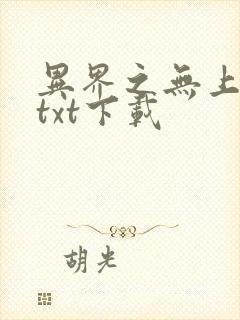 異界之無上
txt下載
胡光